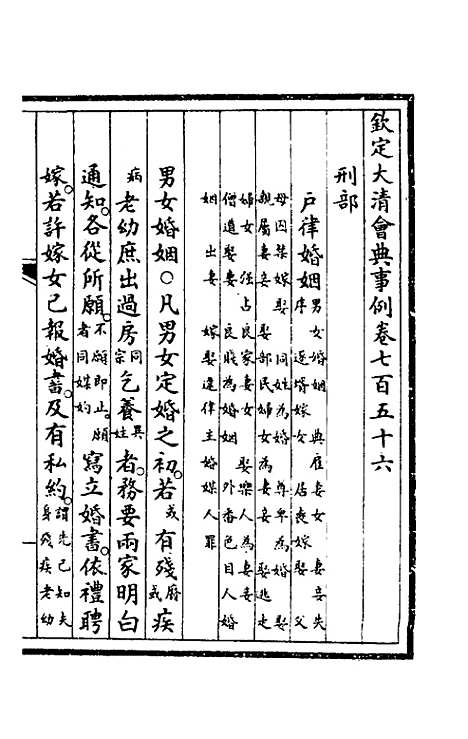 欽定大清會典事例卷七百五十六
刑部
戶律婚姻 男女婚姻 典雇妻女 妻妾失
序 逐壻嫁女 居喪嫁娶 父
母囚禁嫁娶 同姓為婚 尊卑為婚 娶
親屬妻妾 娶部民婦女為妻妾 娶逃走
婦女 強占良家妻女 娶樂人為妻妾
僧道娶妻 良賤為婚姻 外番色目人婚
姻 出妻 嫁娶違律主婚媒人罪
男女婚姻○凡男女定婚之初若或有殘廢或疾
病老幼庶出過房同宗乞養異姓者務要兩家明白
通知各從所願不願即止願者同媒妁寫立婚書依禮聘
嫁若許嫁女已報婚書及有私約謂先已知夫身殘疾老幼